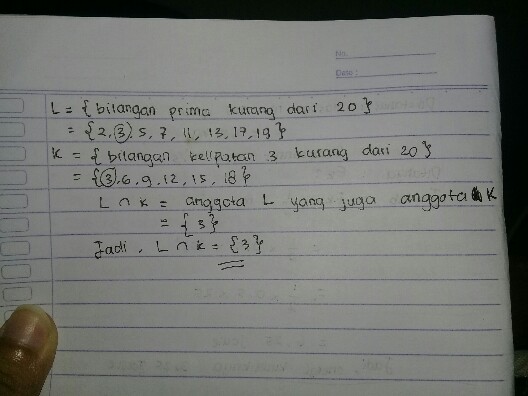 No.
Date:
L = { bilangan prima kurang dari 20 }
= {2, 3, 5, 7, 11, 13, 17, 19}
K = { bilangan kelipatan 3 kurang dari 20 }
= {3, 6, 9, 12, 15, 18}
L ∩ K = anggota L yang juga anggota K
= {3}
Jadi, L ∩ K = {3}